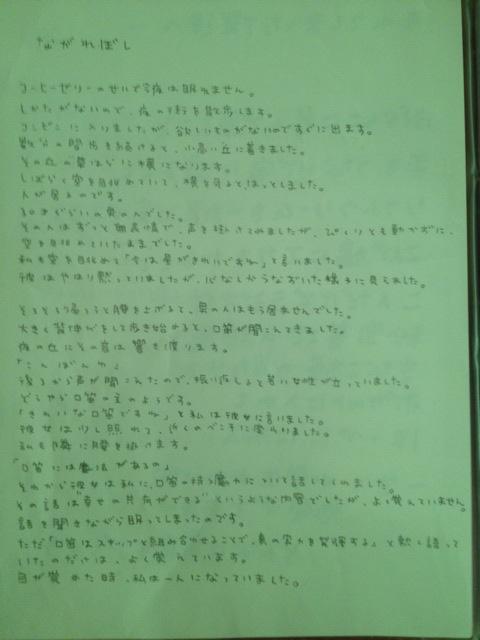 ながれぼし
コーヒーゼリーのせいで今夜は眠れません。
しかたがないので、夜の街を散歩します。
コンビニに入りましたが、欲しいものがないのですぐに出ます。
数分の間歩を続けると、小高い丘に着きました。
その丘の草はらに横になります。
しばらく空を眺めていて、横を見ると、はっとしました。
人が居るのです。
30才ぐらいの男の人でした。
その人はずっと無表情で、声を掛けてみましたが、ぴくりとも動かずに、
空を眺めていたままでした。
私も空を眺めて「今日は星がきれいですね」と言いました。
彼はやはり黙っていましたが、心なしかうなずいた様子に見えました。
そろそろ帰ろうと腰を上げると、男の人はもう居ませんでした。
大きく背伸びをして歩き始めると、口笛が聞こえてきました。
夜の丘にその音は響き渡ります。
「こんばんわ」
後ろから声が聞こえたので、振り返しると若い女性が立っていました。
どうやら口笛の主のようです。
「きれいな口笛ですね」と私は彼女に言いました。
彼女は少し照れて、近くのベンチに座りました。
私も隣に腰を掛けます。
「口笛には魔法があるの」
それから彼女は私に、口笛の持つ魔力について話してくれました。
その話は"幸せの共有ができる"というような内容でしたが、よく覚えていません。
話を聞きながら眠ってしまったのです。
ただ「口笛はスキップと組み合わせることで、真の実力を発揮する」と熱く語って
いたのだけは、よく覚えています。
目が覚めた時、私は一人になっていました。